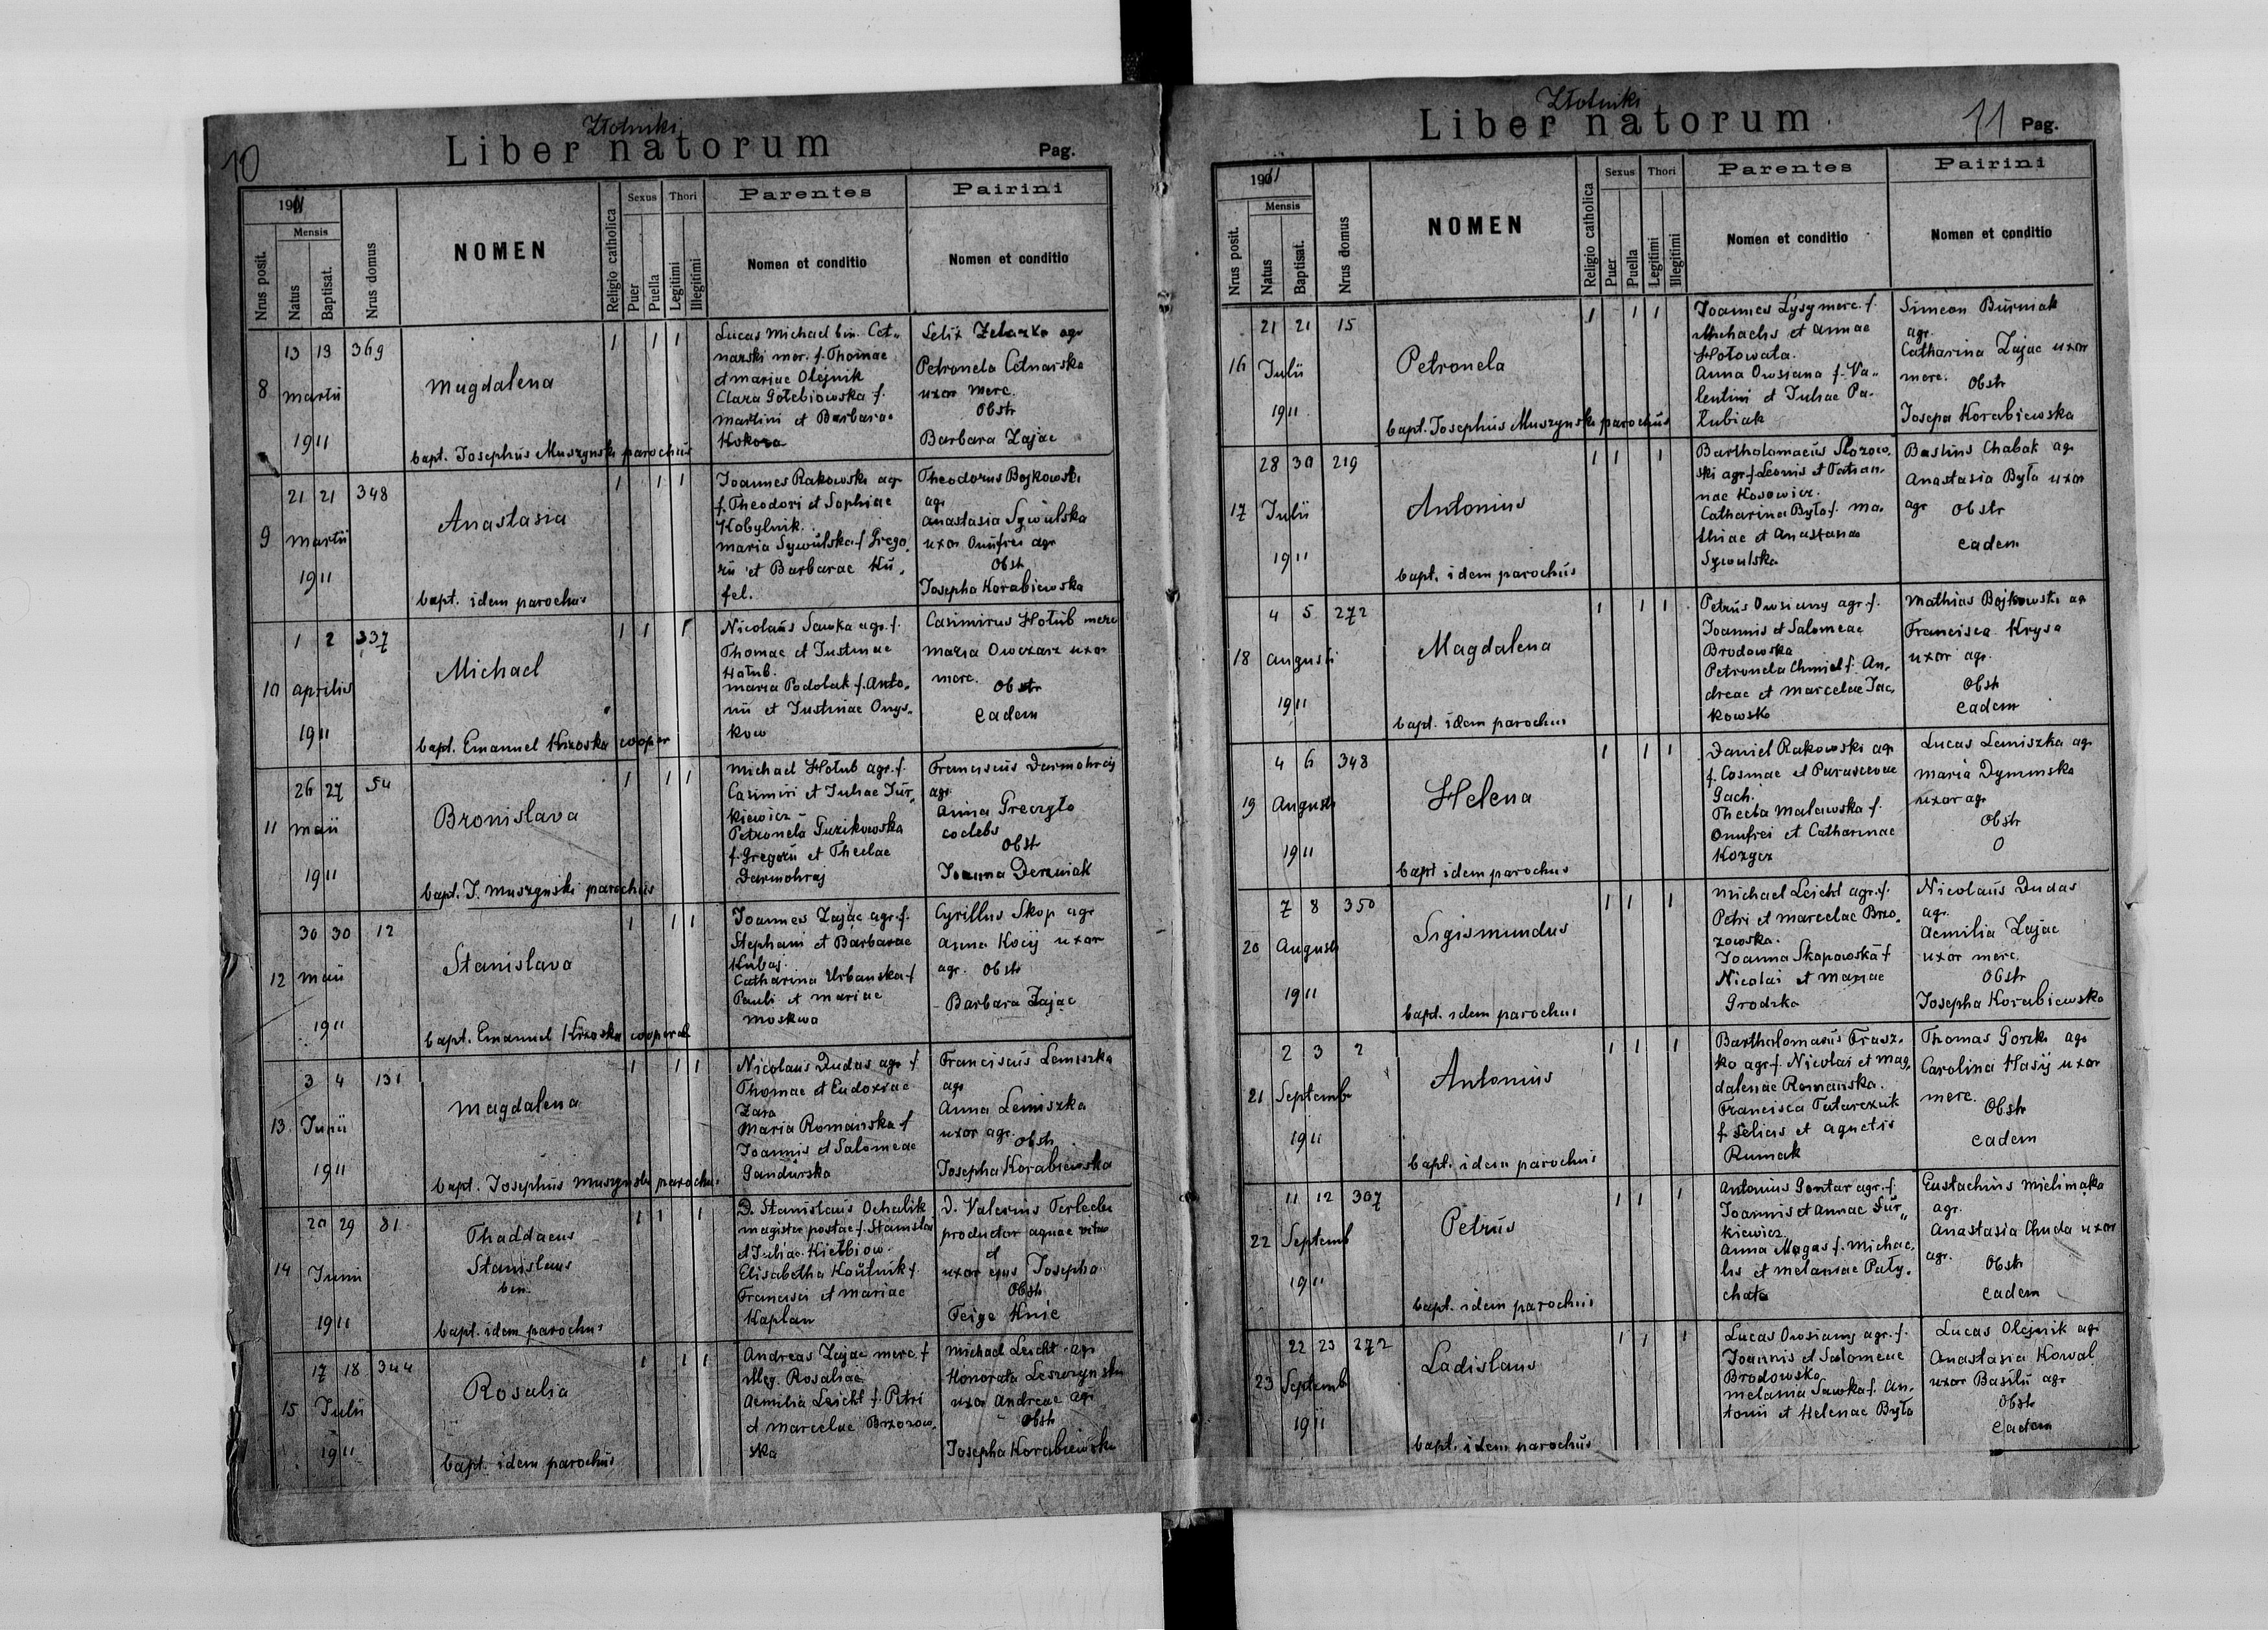 10
Złotniki
Liber natorum
Pag.
1911
Mensis
Nrus posit.
Natus
Baptisat.
Nrus domus
NOMEN
Religio catholica
Sexus
Puer
Puella
Thori
Legitimi
Illegitimi
Parentes
Nomen et conditio
Pairini
Nomen et conditio
8
13 19 369
Martii
1911
Magdalena
bapt. Josephus Muszynski parochus
1 1 1
Lucas Michael bin. Cet„
narski mer. f. Thomae
et Mariae Olejnik
Clara Gołębiowska f.
Martini et Barbarae
Kokoza
Felix Zelazko agr
Petronela Cetnarska
uxor merc.
Obstr
Barbara Zajac
9
21 21 348
Martii
1911
Anastasia
bapt. idem parochus
1 1 1
Joannes Rakowski agr
f. Theodori et Sophiae
Kobylnik.
Maria Sywulska f. Grego„
rii et Barbarae Ku„
fel.
Theodorus Bojkowski
agr
Anastasia Sywulska
uxor Onufrei agr
Obstr
Josepha Korabiewska
10
1 2 337
Aprilis
1911
Michael
bapt. Emanuel Krzoska cooper
1 1 1
Nicolaus Sawka agr. f.
Thomae et Justinae
Hołub.
Maria Podolak f. Anto„
nii et Justinae Onys„
kow
Casimirus Hołub merc
Maria Owczarz uxor
merc.
Obstr
eadem
11
26 27 54
Maii
1911
Bronislava
bapt. J. Muszynski parochus
1 1 1
Michael Hołub agr. f.
Casimiri et Juliae Jur„
kiewicz –
Petronela Guzikowska
f. Gregorii et Theclae
Darmohraj
Franciscus Darmohraj
agr.
Anna Greczyło
coelebs
Obstr
Joanna Derzniak
12
30 30 12
Maii
1911
Stanislava
bapt. Emanuel Krzoska cooperat
1 1 1
Joannes Zając agr. f.
Stephani et Barbarae
Kubaj.
Catharina Urbanska f
Pauli et Mariae
Moskwa
Cyrillus Skop agr
Anna Kocij uxor
agr. Obstr
Barbara Zając
13
3 4 131
Junii
1911
Magdalena
bapt. Josephus Muszynski parochus
1 1 1
Nicolaus Dudas agr f
Thomae et Eudoxiae
Zara
Maria Romanska f
Joannis et Salomeae
Gandurska
Franciscus Lemiszka
agr
Anna Lemiszka
uxor agr. Obstr
Josepha Korabiewska
14
20 29 81
Junii
1911
Thaddaeus
Stanislaus
bin.
bapt. idem parochus
1 1 1
D. Stanislaus Ochalik
magister postae f. Stanislai
et Juliae Kiełbiow.
Elisabetha Koutnik f.
Francisci et Mariae
Kaplan
D. Valerius Terlecki
productor aquae vitae
et
uxor ejus Josepha
Obstr
Feige Knie
15
17 18 344
Julii
1911
Rosalia
bapt. idem parochus
1 1 1
Andreas Zając merc. f
illeg. Rosaliae
Aemilia Leicht f. Petri
et Marcelae Brzozow„
ska
Michael Leicht agr
Honorata Leszczynska
uxor Andreae agr
Obstr
Josepha Korabiewska
Złotniki
Liber natorum
11 Pag.
1911
Mensis
Nrus posit.
Natus
Baptisat.
Nrus domus
NOMEN
Religio catholica
Sexus
Puer
Puella
Thori
Legitimi
Illegitimi
Parentes
Nomen et conditio
Pairini
Nomen et conditio
16
21 21 15
Julii
1911
Petronela
bapt. Josephus Muszynski parochus
1 1 1
Joannes Łysy merc. f.
Michaelis et Annae
Hołowata.
Anna Owsiana f. Va„
lentini et Juliae Pa„
lubiak
Simeon Burniak
agr.
Catharina Zając uxor
merc. Obstr
Josepa Korabiewska
17
28 30 219
Julii
1911
Antonius
bapt. idem parochus
1 1 1
Bartholomaeus Słozow„
ski agr f Leonis et Tatian„
nae Kosowicz.
Catharina Było f. Ma„
thiae et Anastasiae
Sywulska
Basilius Chabak agr
Anastasia Było uxor
agr Obstr
eadem
18
4 5 272
Augusti
1911
Magdalena
bapt. idem parochus
1 1 1
Petrus Owsiany agr. f.
Joannis et Salomeae
Brodowska
Petronela Chmiel f. An„
dreae et Marcelae Jac„
kowsk
Mathias Bojkowski agr
Francisca Krysa
uxor agr.
Obstr
eadem
19
4 6 348
Augusti
1911
Helena
bapt idem parochus
1 1 1
Daniel Rakowski agr
f. Cosmae et Parascevae
Gach.
Thecla Malawska f.
Onufrei et Catharinae
Kozyra
Lucas Lemiszka agr
Maria Dyminska
uxor agr
Obstr
0
20
7 8 350
Augusti
1911
Sigismundus
bapt. idem parochus
1 1 1
Michael Leicht agr. f.
Petri et Marcelae Brzo„
zowska.
Joanna Skopowska f
Nicolai et Mariae
Grodzka
Nicolaus Dudas
agr.
Aemilia Zając
uxor merc.
Obstr
Josepha Korabiewska
21
2 3 2
Septemb
1911
Antonius
bapt. idem parochus
1 1 1
Bartholomaeus Frasz„
ko agr f. Nicolai et Mag„
dalenae Romanska.
Francisca Tatarczuk
f. Felicis et Agnetis
Rumak
Thomas Gorzki agr
Carolina Hasij uxor
merc.
Obstr
eadem
22
11 12 307
Septemb
1911
Petrus
bapt. idem parochus
1 1 1
Antonius Gontar agr. f.
Joannis et Annae Jur„
kiewicz
Anna Magas f. Michae„
lis et Melaniae Paty„
chata
Eustachius Mielimąka
agr.
Anastasia Chuda uxor
agr.
Obstr
eadem
23
22 23 272
Septemb
1911
Ladislaus
bapt. idem parochus
1 1 1
Lucas Owsiany agr. f.
Joannis et Salomeae
Brodowska
Melania Sawka f. An„
tonii et Helenae Było
Lucas Olejnik agr
Anastasia Kowal
uxor Basilii agr
Obstr
eadem